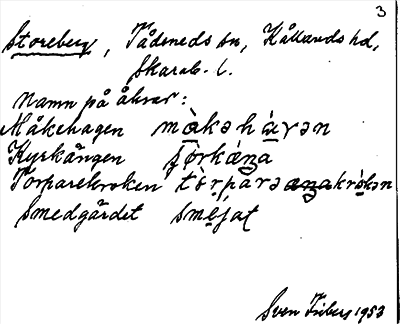 3
Storeberg, Tådeneds sn, Kållands hd,
Skarab. l.
Namn på åkrar:
Måkehagen màkəhávən
Kyrkängen
Torparekroken tòrparəkròkən
Smedgärdet smejat
Sven Friberg 1953